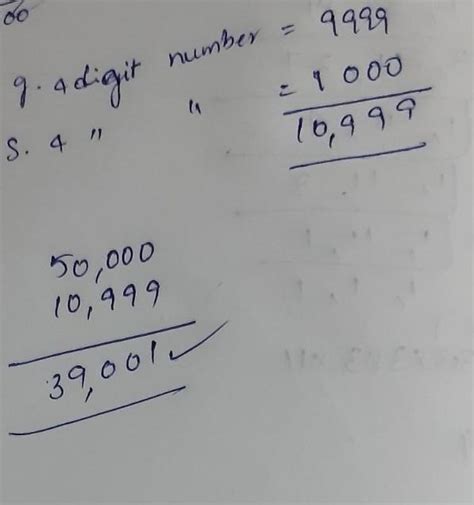 00
g. 4 digit number = 9999
S. 4 " " = 1000
10,999
50,000
10,999
39,001 ✓